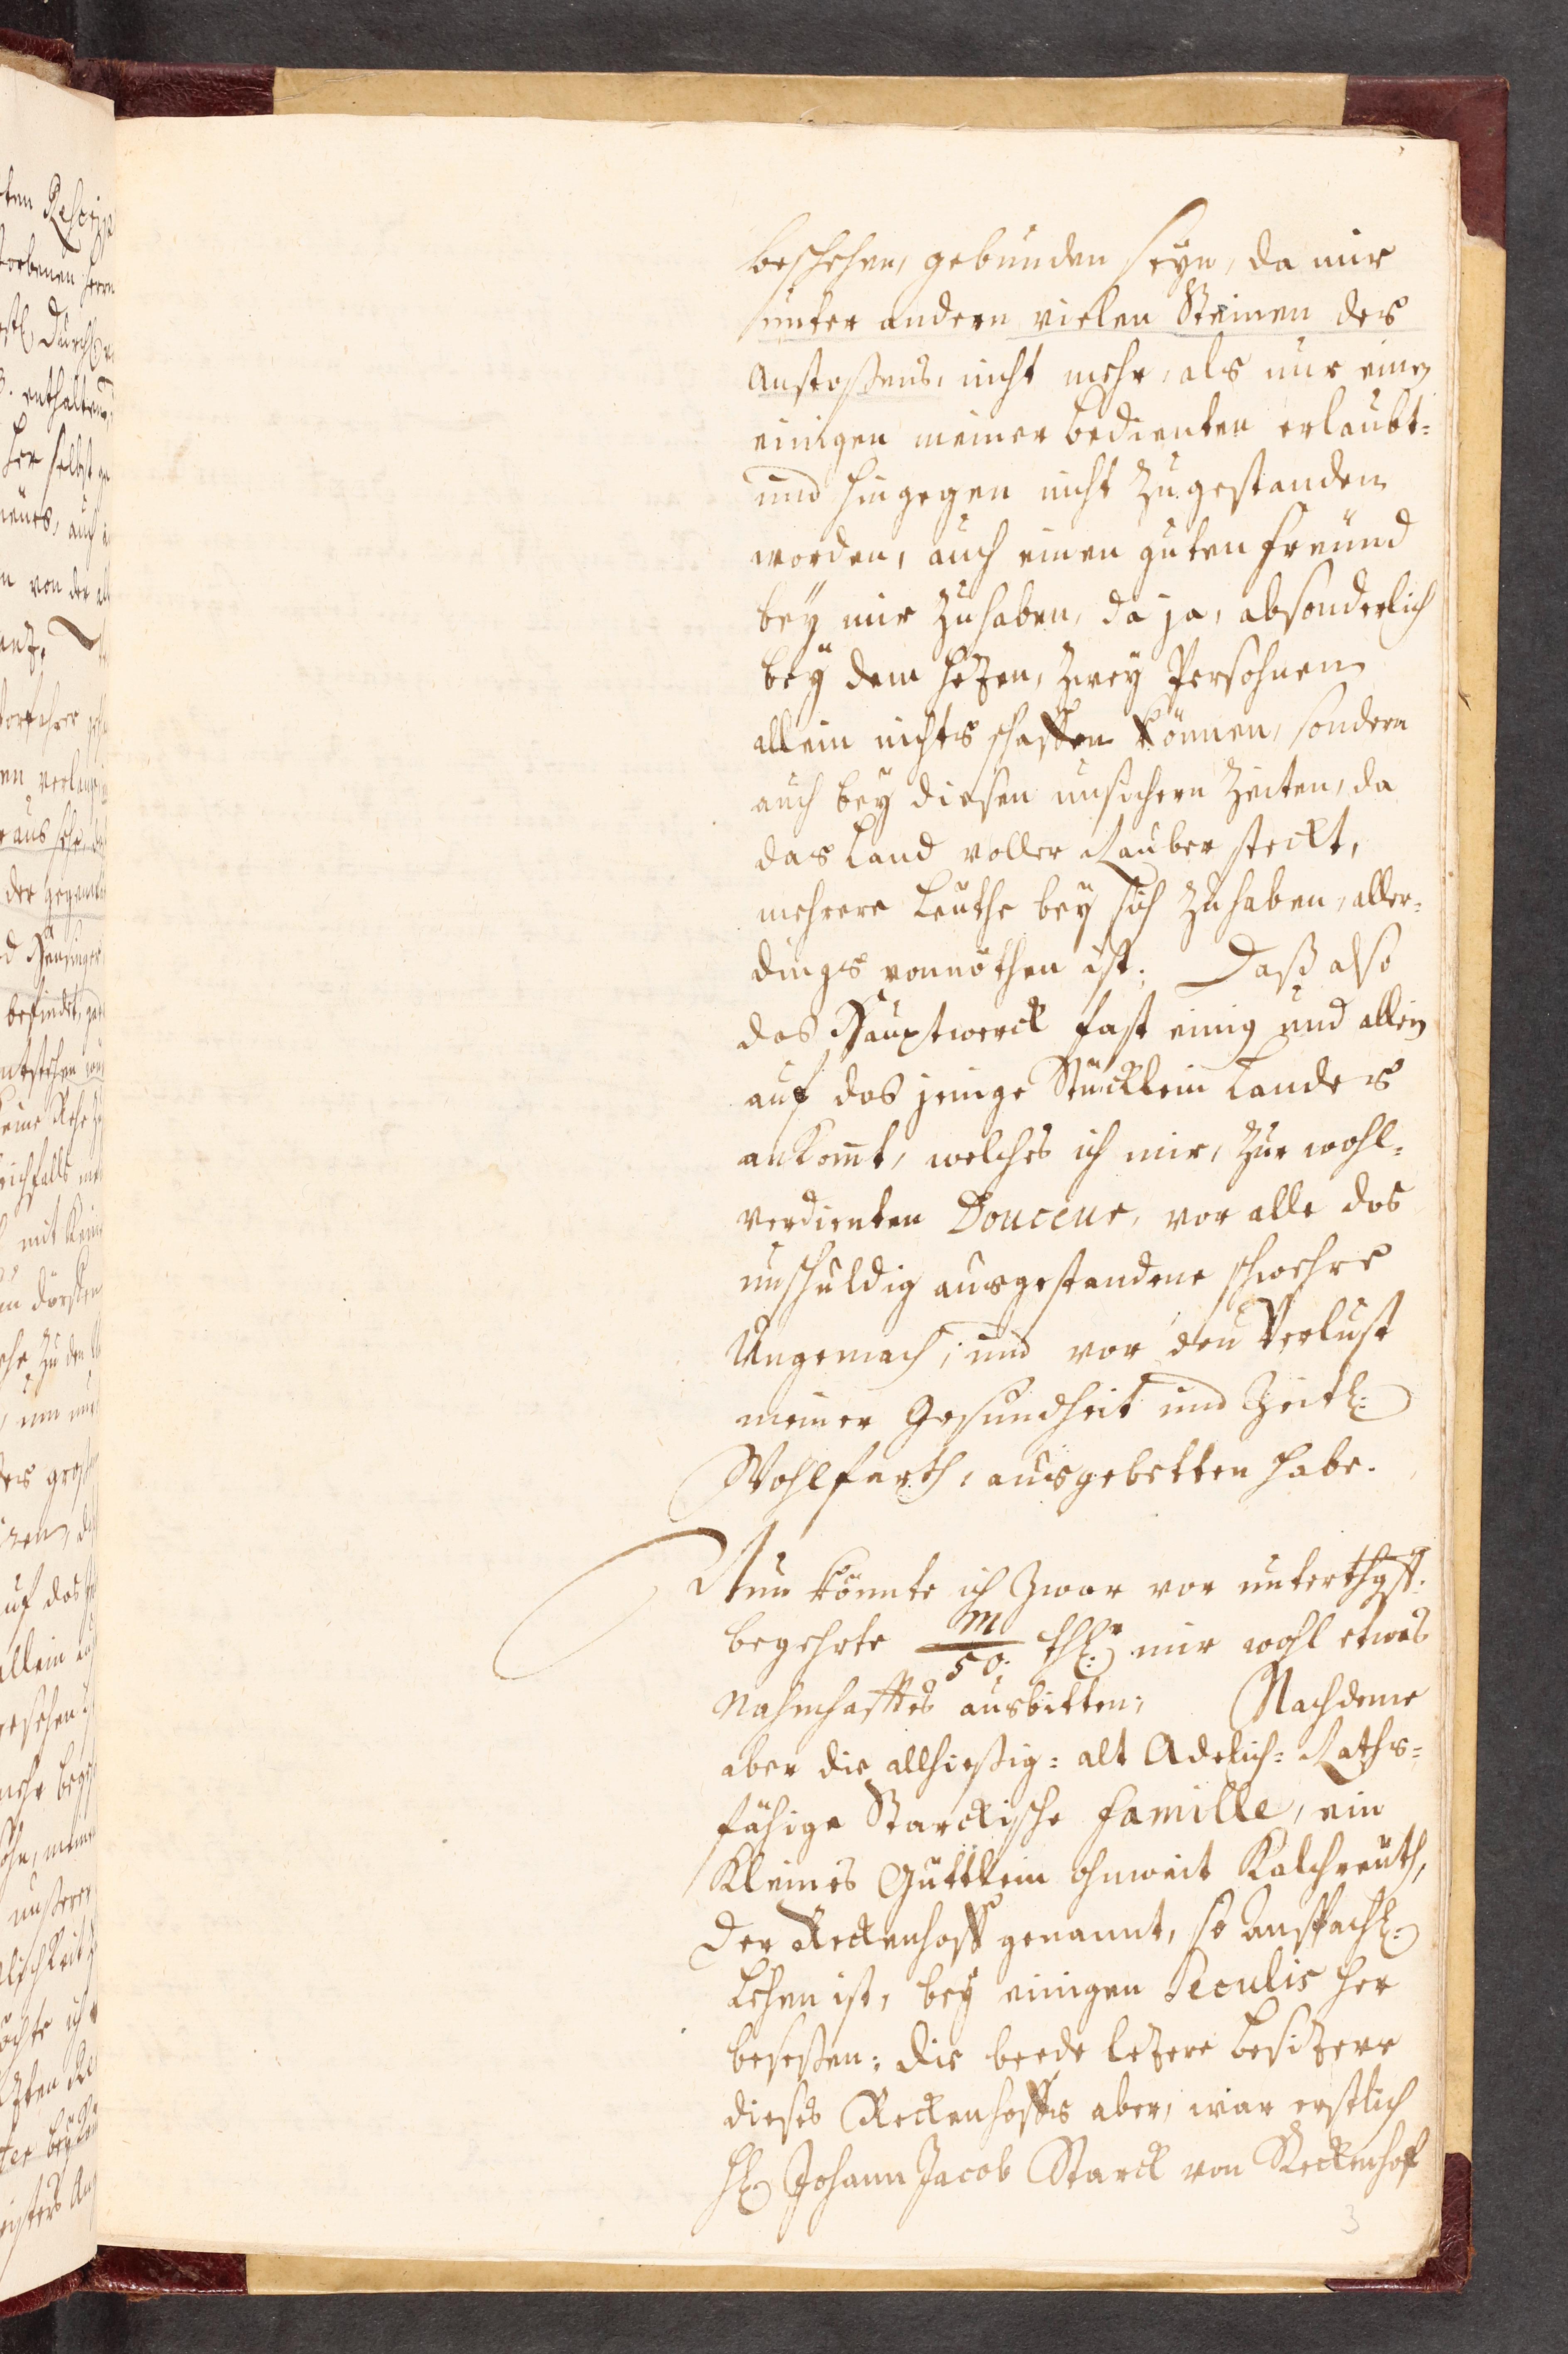 beschehen, gebunden seyn, da mir
unter andern vielen Steinen des
Anstoßens, nicht mehr, als nur einen
einigen meiner bedienten erlaubt-
und hingegen nicht zugestanden
worden, auch einen guten Freund
bey mir zuhaben, da ja, absonderlich
bey dem hezen, zwey Persohnen
allein nichts schaffen können, sondern
auch bey diesen unsichern Zeiten, da
das Land voller Rauber steckt,
mehrere Leuthe bey sich zuhaben, aller-
dings vonnöthen ist. Daß also
das Hauptwerck fast einig und allein
auf das jenige Stücklein Landes
ankom̄t, welches ich mir, zur wohl-
verdienten Douceur, vor alle das
unschuldig ausgestandene schwehre
Ungemach, und vor den Verlust
meiner Gesundheit und Zeitl:
Wohlfarth, ausgebetten habe.
Nun könnte ich zwar vor unterthgst.
begehrte m/50. thl: mir wohl etwas
Nahmhafftes ausbitten; Nachdeme
aber die allhießig- alt Adelich- Raths-
fähige Starckische Famille, ein
kleines Güttlein ohnweit Kalchreuth,
der Reckenhoff genannt, so Anspachl:
Lehen ist, bey einigen Seculis her
beseßen; die beede leztere Besizere
dieses Reckenhoffs aber, war erstlich
H: Johann Jacob Starck von Reckenhof
3
ten Rescrip
storbenen Herrn
enthalten
selbst
auch
von der
verlang
aus sehe, da
der Gegend
befindet
entstehen
keine Rehe
gleichfalls
mit
dörffen
zu den
auf das
allein
mehr
unßerer